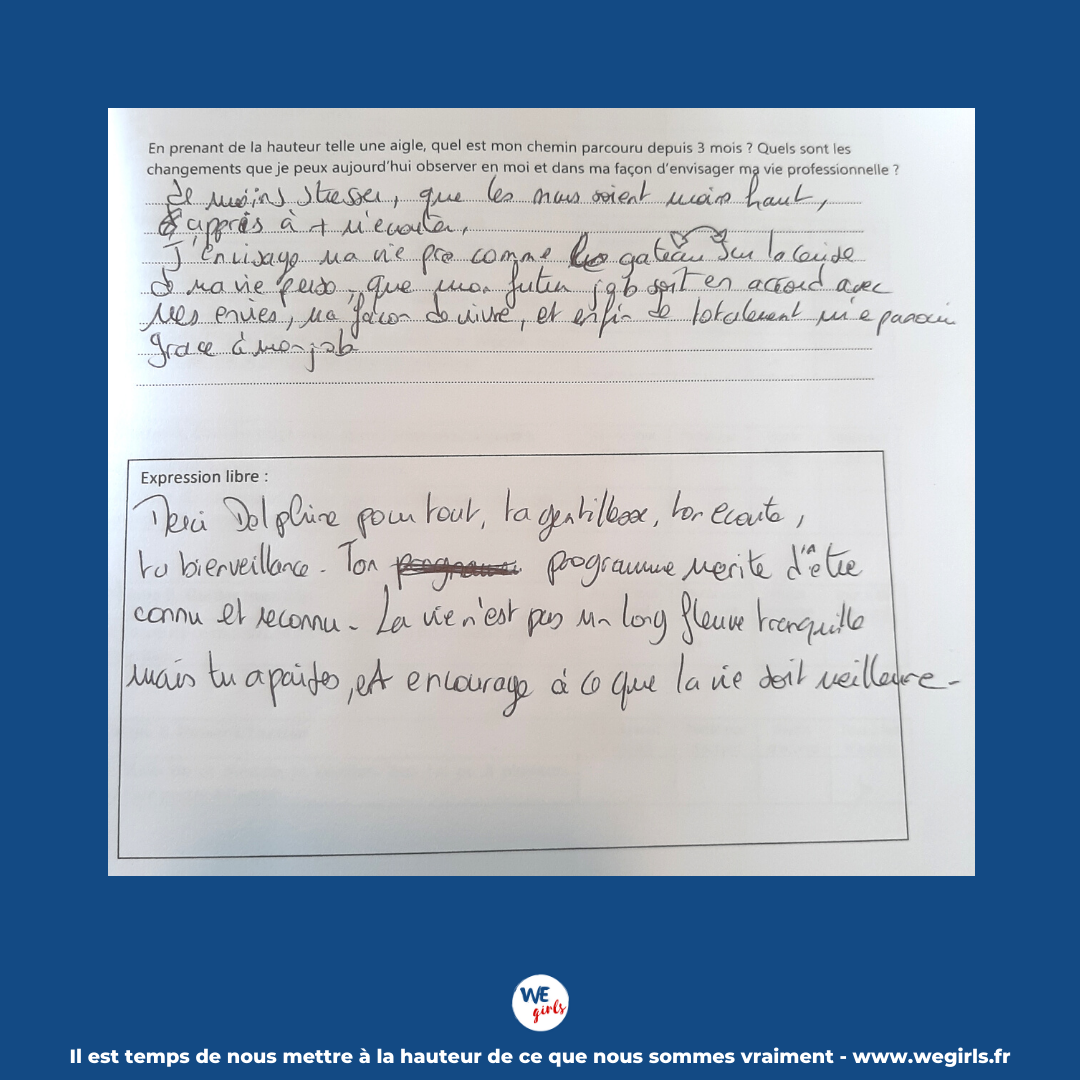 En prenant de la hauteur telle une aigle, quel est mon chemin parcouru depuis 3 mois ? Quels sont les
changements que je peux aujourd'hui observer en moi et dans ma façon d'envisager ma vie professionnelle ?
de moins stresser, que les murs soient moins haut,
appris à + m'écouter,
J'envisage ma vie pro comme gateau sur la cerise
de ma vie perso, que mon futur job soit en accord avec
mes envies, ma façon de vivre, et enfin de totalement m'épanouir
grace à mon job
Expression libre :
Merci Delphine pour tout, ta gentillesse, ton ecoute,
ta bienveillance. Ton programme merite d'être
connu et reconnu. La vie n'est pas un long fleuve tranquille
mais tu apaises, et encourage à ce que la vie soit meilleure.
WE
girls
Il est temps de nous mettre à la hauteur de ce que nous sommes vraiment - www.wegirls.fr